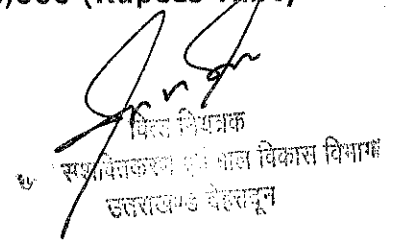 ,000 (Rupees
वित्त नियंत्रक
सशक्तिकरण एवं बाल विकास विभाग
उत्तराखण्ड देहरादून